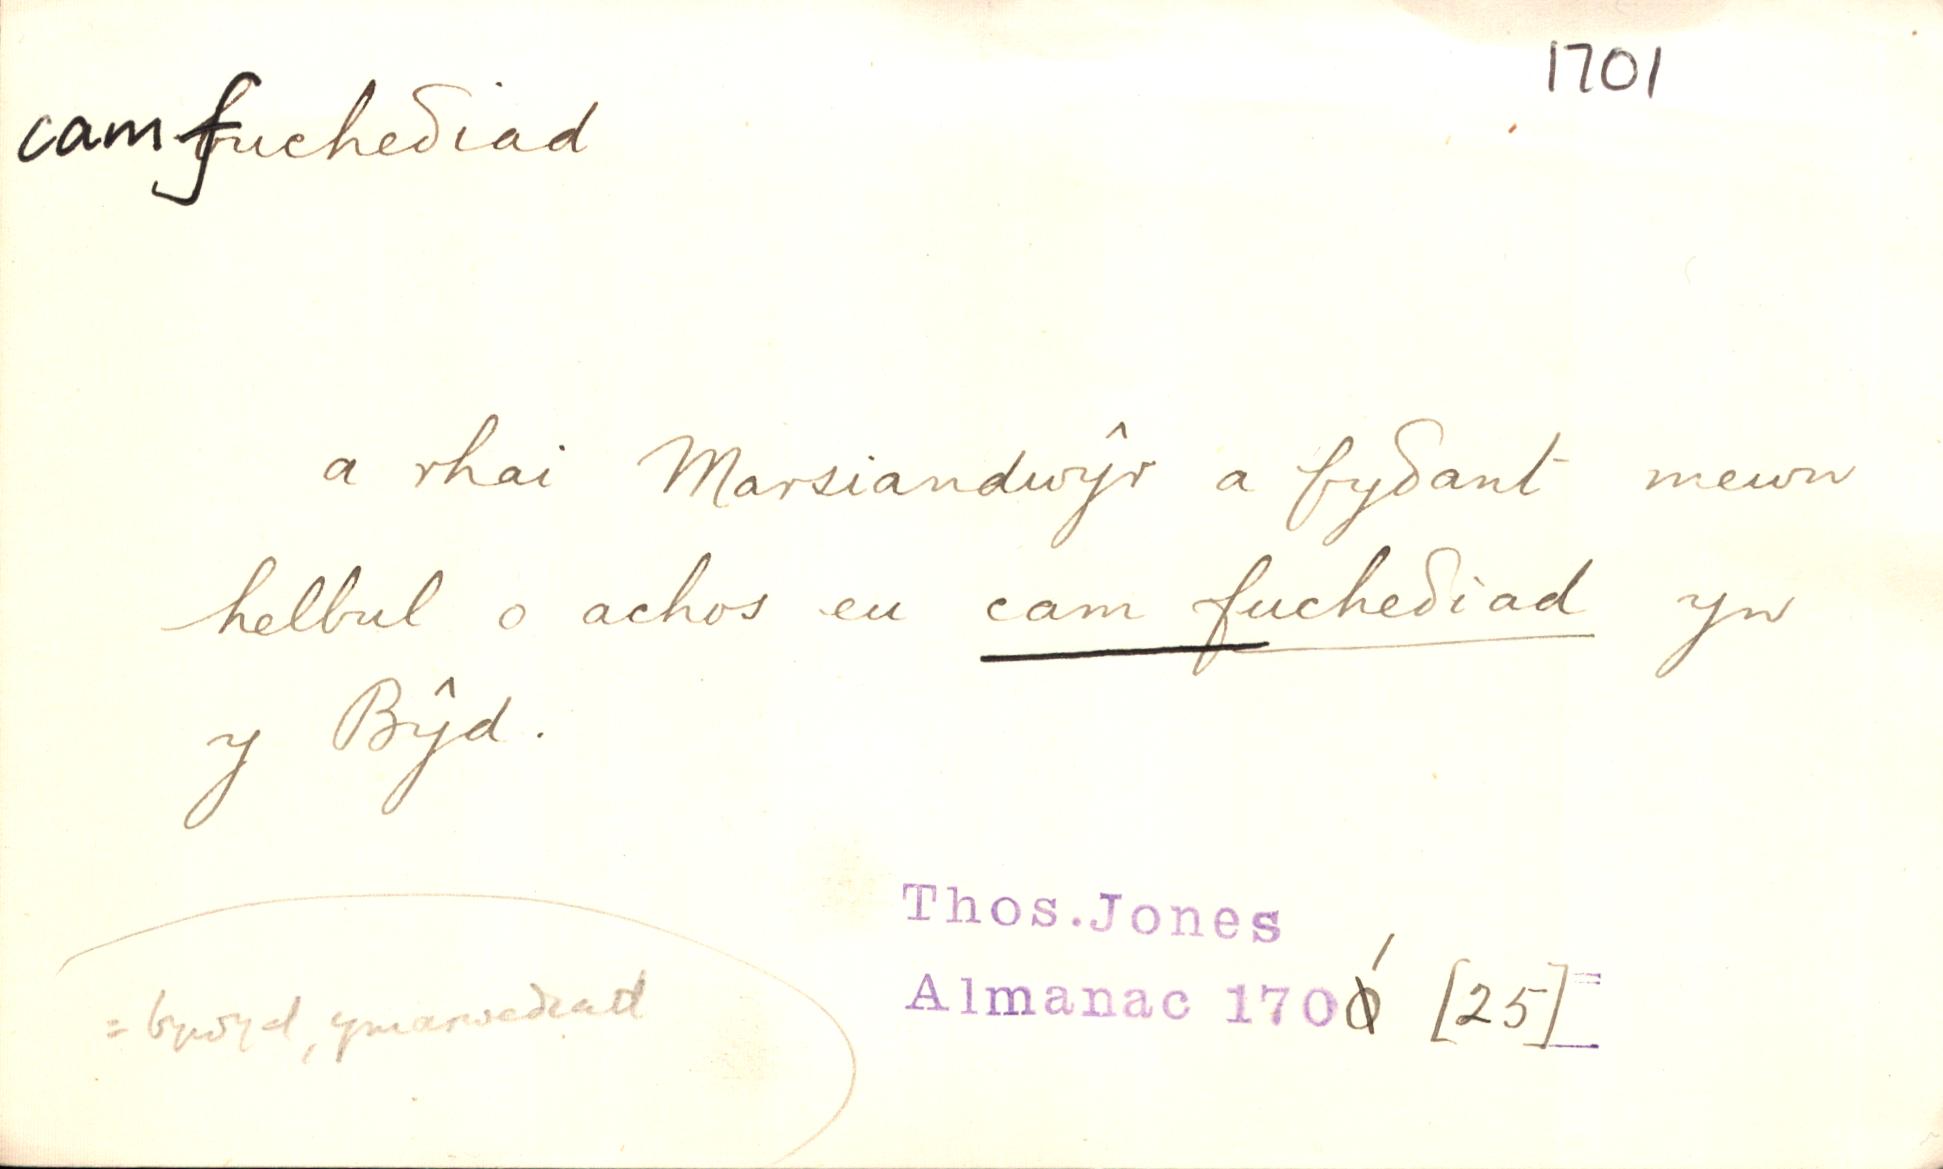 1701
camfucheδiad
a rhai Marsiandwŷr a fyδant mewn
helbul o achos eu cam fucheδiad yn
y Bŷd.
= bywyd, ymarweδiad
Thos.Jones
Almanac 1701 [25]